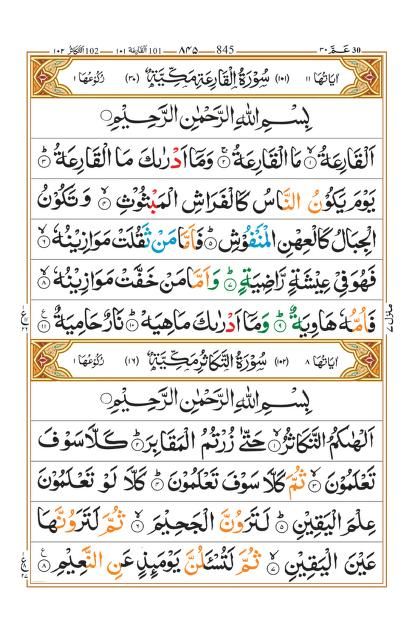 102 التكاثر ١٠٢ 101 القارعة ١٠١ ٨٤٥ 845 عـمّ ٣٠ 30
اٰيَاتُهَا ١١ (١٠١) سُوْرَةُ الْقَارِعَةِ مَكِّيَّةٌ (٣٠) رُكُوْعُهَا ١
بِسْمِ اللّٰهِ الرَّحْمٰنِ الرَّحِيْمِ
اَلْقَارِعَةُ ۙ﴿۱﴾ مَا الْقَارِعَةُ ۚ﴿۲﴾ وَمَاۤ اَدْرٰىكَ مَا الْقَارِعَةُ ؕ﴿۳﴾
يَوْمَ يَكُوْنُ النَّاسُ كَالْفَرَاشِ الْمَبْثُوْثِ ۙ﴿۴﴾ وَ تَكُوْنُ
الْجِبَالُ كَالْعِهْنِ الْمَنْفُوْشِ ؕ﴿۵﴾ فَاَمَّا مَنْ ثَقُلَتْ مَوَازِيْنُهٗ ۙ﴿۶﴾
فَهُوَ فِيْ عِيْشَةٍ رَّاضِيَةٍ ؕ﴿۷﴾ وَاَمَّا مَنْ خَفَّتْ مَوَازِيْنُهٗ ۙ﴿۸﴾
فَاُمُّهٗ هَاوِيَةٌ ؕ﴿۹﴾ وَمَاۤ اَدْرٰىكَ مَاهِيَهْ ؕ﴿۱۰﴾ نَارٌ حَامِيَةٌ ﴿۱۱﴾
منزل ٧
اٰيَاتُهَا ٨ (١٠٢) سُوْرَةُ التَّكَاثُرِ مَكِّيَّةٌ (١٦) رُكُوْعُهَا ١
بِسْمِ اللّٰهِ الرَّحْمٰنِ الرَّحِيْمِ
اَلْهٰىكُمُ التَّكَاثُرُ ۙ﴿۱﴾ حَتّٰى زُرْتُمُ الْمَقَابِرَ ؕ﴿۲﴾ كَلَّا سَوْفَ
تَعْلَمُوْنَ ۙ﴿۳﴾ ثُمَّ كَلَّا سَوْفَ تَعْلَمُوْنَ ؕ﴿۴﴾ كَلَّا لَوْ تَعْلَمُوْنَ
عِلْمَ الْيَقِيْنِ ؕ﴿۵﴾ لَتَرَوُنَّ الْجَحِيْمَ ۙ﴿۶﴾ ثُمَّ لَتَرَوُنَّهَا
عَيْنَ الْيَقِيْنِ ۙ﴿۷﴾ ثُمَّ لَتُسْئَلُنَّ يَوْمَئِذٍ عَنِ النَّعِيْمِ ﴿۸﴾